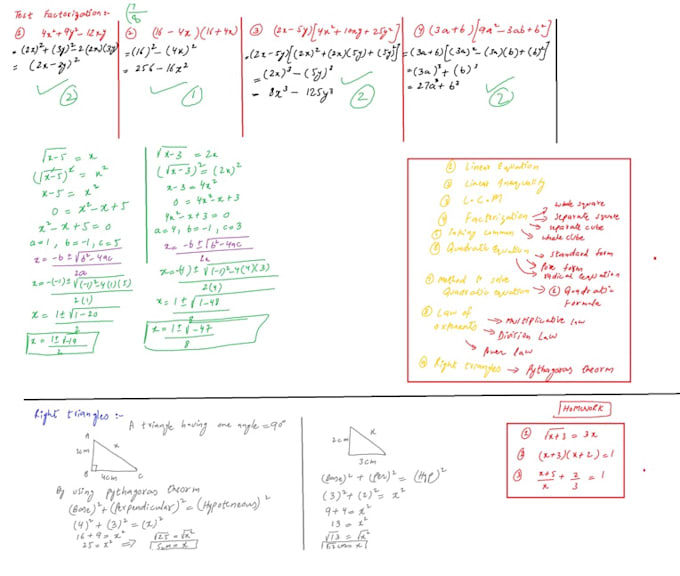 Test Factorization:-
7/8
① 4x²+9y²-12xy
= (2x)²+(3y)²-2(2x)(3y)
= (2x-3y)²
②
② (16-4x)(16+4x)
= (16)²-(4x)²
= 256-16x²
①
③ (2x-5y)[4x²+10xy+25y²]
= (2x-5y)[(2x)²+(2x)(5y)+(5y)²]
= (2x)³-(5y)³
= 8x³-125y³
②
④ (3a+b)[9a²-3ab+b²]
= (3a+b)[(3a)²-(3a)(b)+(b)²]
= (3a)³+(b)³
= 27a³+b³
②
√x-5 = x
(√x-5)² = x²
x-5 = x²
0 = x²-x+5
x²-x+5=0
a=1, b=-1, c=5
x = -b±√b²-4ac
2a
x = -(-1)±√(-1)²-4(1)(5)
2(1)
x = 1±√1-20
2
x = 1±√-19
2
√x-3 = 2x
(√x-3)² = (2x)²
x-3 = 4x²
0 = 4x²-x+3
4x²-x+3=0
a=4, b=-1, c=3
x = -b±√b²-4ac
2a
x = -(-1)±√(-1)²-4(4)(3)
2(4)
x = 1±√1-48
8
x = 1±√-47
8
① Linear Equation
② Linear Inequality
③ L.C.M
④ Factorization → whole square
→ separate square
→ separate cube
→ whole cube
⑤ Taking common
⑥ Quadratic Equation → standard form
→ pure form
→ radical equation
⑦ Method to solve
Quadratic equation → ⑥ Quadratic
Formula
⑧ Law of
exponents → Multiplicative law
→ Division Law
→ Power law
⑨ Right triangles → Pythagoras theorm
Right triangles:-
A triangle having one angle = 90°
A
3cm
x
B
4cm
C
By using pythagoras theorm
(Base)²+(Perpendicular)² = (Hypoteneous)²
(4)²+(3)² = (x)²
16+9 = x²
25 = x² ⇒ √25 = √x²
5cm = x
2cm
x
3cm
(Base)²+(Per)² = (Hyp)²
(3)²+(2)² = x²
9+4 = x²
13 = x²
√13 = √x²
HOMEWORK
① √x+3 = 3x
② (x+3)(x+2)=1
③ x+5/x + 2/3 = 1